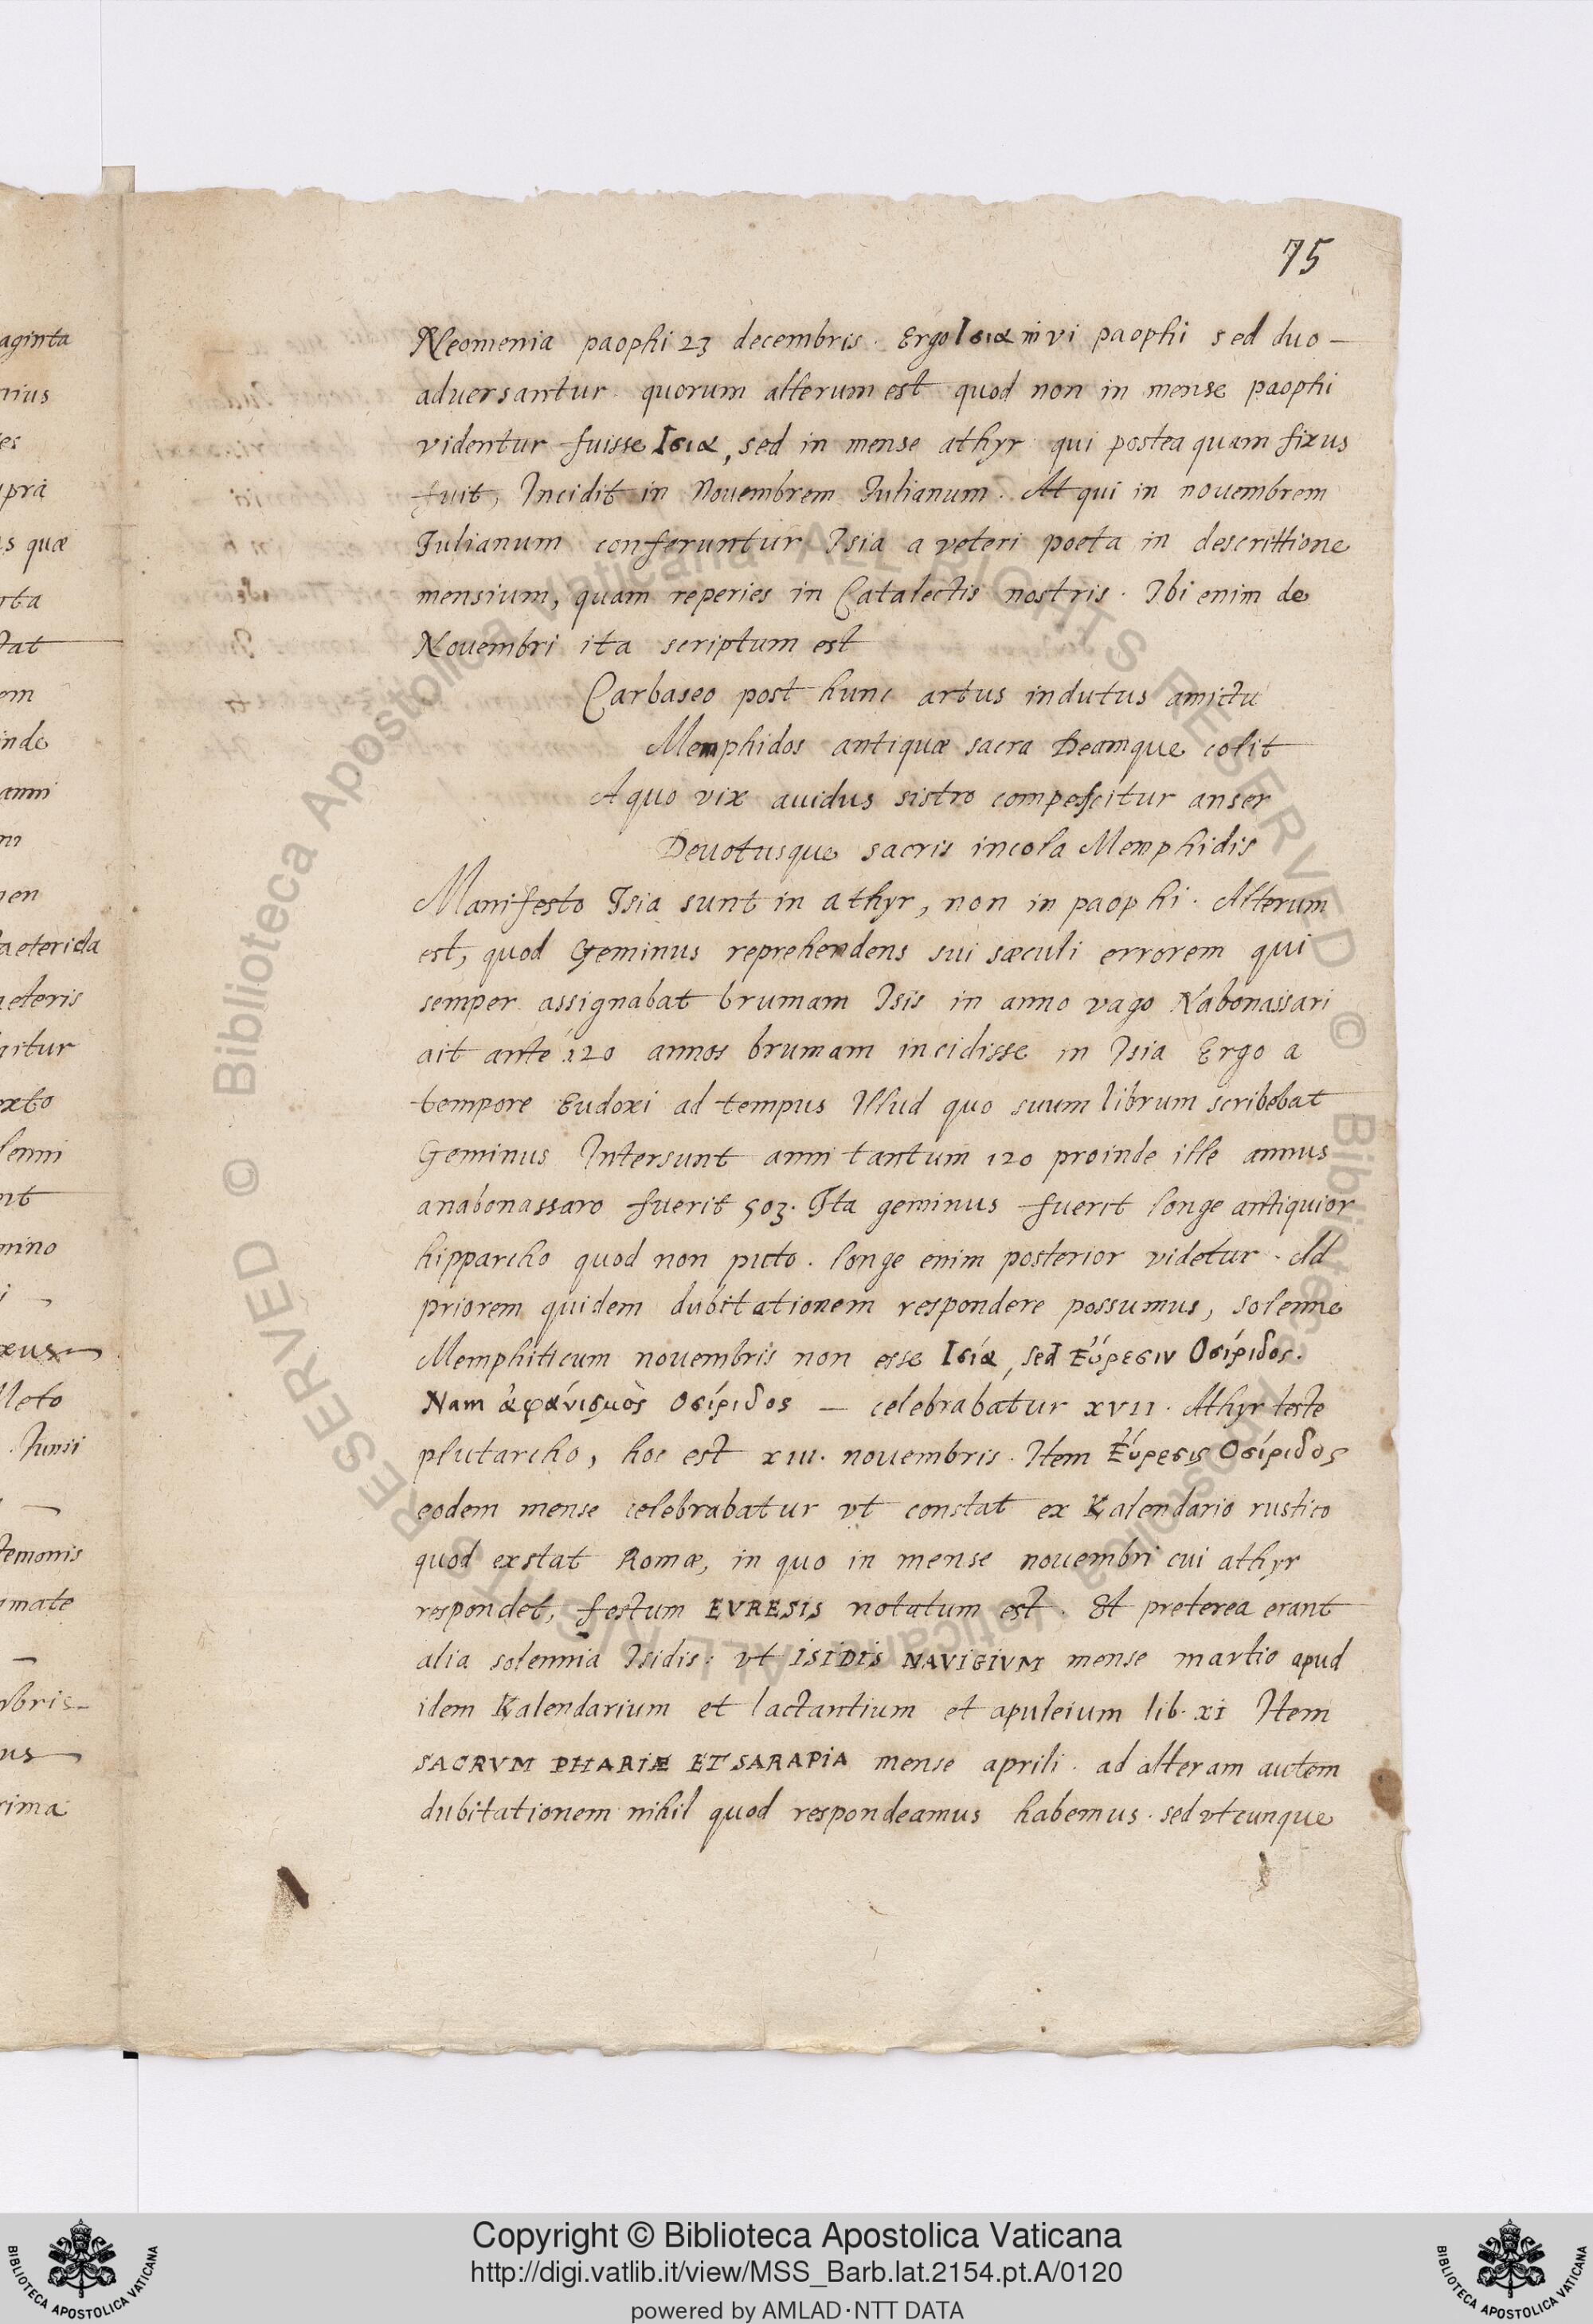 75
Neomenia paophi 23 decembris. Ergo Ισια in vi paophi sed duo –
aduersantur. quorum alterum est quod non in mense paophi
videntur fuisse Ισια, sed in mense athyr qui postea quam fixus
fuit, Incidit in Nouembrem Iulianum. At qui in nouembrem
Iulianum conferuntur Isia a veteri poeta in descrittione
mensium, quam reperies in Catalectis nostris. Ibi enim de
Nouembri ita scriptum est
Carbaseo post hunc artus indutus amictu
Memphidos antiquæ sacra Deamque colit
A quo vix auidus sistro compescitur anser
Deuotusque sacris incola Memphidis
Manifesto Isia sunt in athyr, non in paophi. Alterum
est, quod Geminus reprehendens sui sæculi errorem qui
semper assignabat brumam Isis in anno vago Nabonassari
ait ante 120 annos brumam incidisse in Isia Ergo a
tempore Eudoxi ad tempus Illud quo suum librum scribebat
Geminus Intersunt anni tantum 120 proinde ille annus
anabonassaro fuerit 503. Ita geminus fuerit longe antiquior
hipparcho quod non puto. longe enim posterior videtur. Ad
priorem quidem dubitationem respondere possumus, solenne
Memphiticum nouembris non esse Ισία, sed Εὕρεσιν Οσίριδος.
Nam ἀφάνισμὸς Οσίριδος – celebrabatur XVII. Athyr teste
plutarcho, hoc est XIII. nouembris. Item Εὕρεσις Οσίριδος
eodem mense celebrabatur vt constat ex Kalendario rustico
quod exstat Romæ, in quo in mense nouembri cui athyr
respondet, festum EVRESIS notatum est. Et preterea erant
alia solennia Isidis: vt ISIDIS NAVIGIVM mense martio apud
idem Kalendarium et lactantium et apuleium lib. XI Item
SACRVM PHARIÆ ET SARAPIA mense aprili. ad alteram autem
dubitationem nihil quod respondeamus habemus. sed vtcunque
aginta
nius
es
upra
quæ
tat
em
inde
anni
men
aeterida
aeteris
exto
lenni
mino
Meto
Junii
temonis
mate
rima
© Biblioteca Apostolica Vaticana ALL RIGHTS RESERVED © Biblioteca Apostolica Vaticana ALL RIGHTS RESERVED
BIBLIOTECA APOSTOLICA VATICANA
Copyright © Biblioteca Apostolica Vaticana
http://digi.vatlib.it/view/MSS_Barb.lat.2154.pt.A/0120
powered by AMLAD·NTT DATA
BIBLIOTECA APOSTOLICA VATICANA